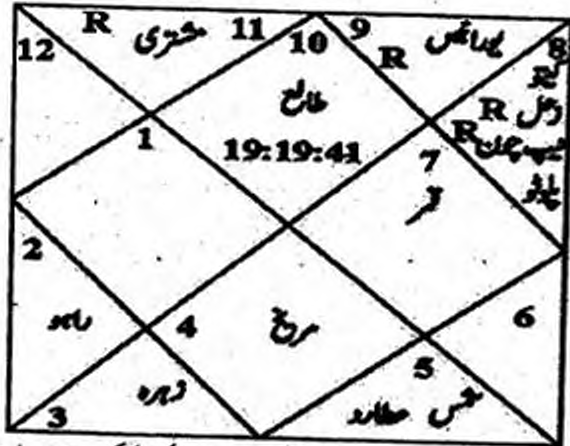 12
R مشتری 11
10
9 R یورانس
8
R
زحل R
R نیپ چون
پلوٹو
طالع
19:19:41
1
7
قمر
2
راہو
4
مریخ
6
زہرہ
3
5
شمس عطارد